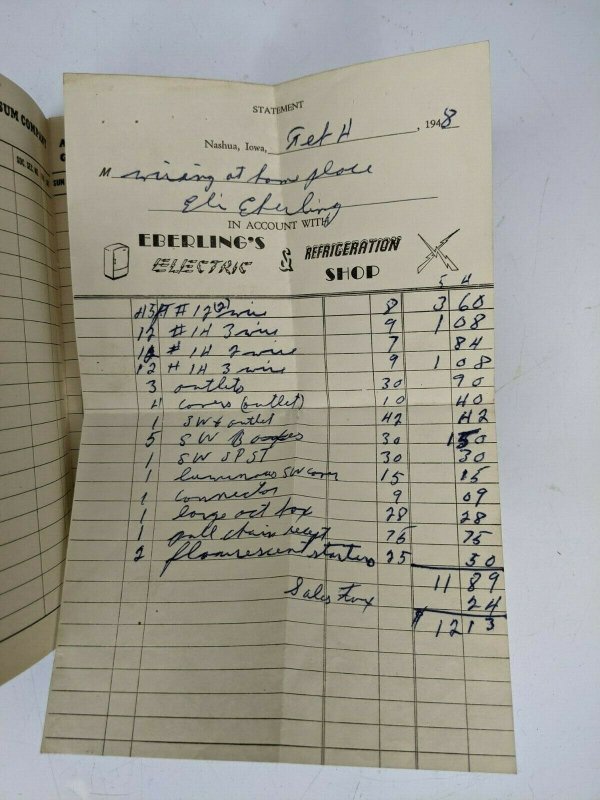 SUM COMPANY
SOC. SEC. NO.
SUN
STATEMENT
Nashua, Iowa, Feb 4, 1948
M wiring at home place
Eli Eberling
IN ACCOUNT WITH
EBERLING'S
ELECTRIC & REFRIGERATION
SHOP
5 4
# 12 (2) wire 8 3 60
12 # 14 3 wire 9 1 08
12 # 14 2 wire 7 84
12 # 14 3 wire 9 1 08
3 outlets 30 90
4 covers (outlet) 10 40
1 SW & outlet 42 42
5 SW Boxes 30 1 50
1 SW SPST 30 30
1 luminous SW cover 15 15
1 connector 9 09
1 large oct box 28 28
1 pull chain recept 75 75
2 flourescent starters 25 50
11 89
Sales Tax 24
$ 12 13